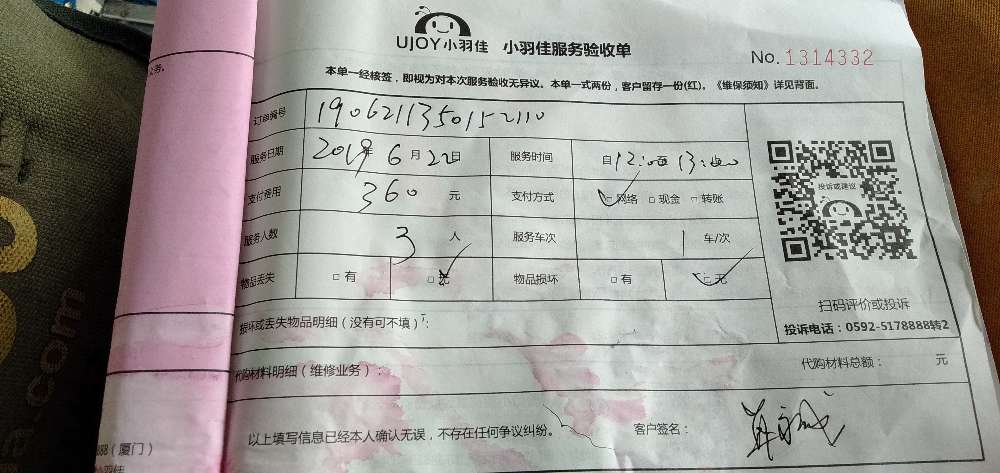 UJOY小羽佳 小羽佳服务验收单
No. 1314332
本单一经核签，即视为对本次服务验收无异议。本单一式两份，客户留存一份(红)。《维保须知》详见背面。
订单编号 1906211350152110
服务日期 2019年6月22日 服务时间 自12:00至13:00
支付费用 360 元 支付方式 网络 □现金 □转账
服务人数 3 人 服务车次 1 车/次
物品丢失 □有 □无 物品损坏 □有 □无
投诉或建议
扫码评价或投诉
损坏或丢失物品明细（没有可不填）:
投诉电话：0592-5178888转2
代购材料明细（维修业务）: 代购材料总额： 元
以上填写信息已经本人确认无误，不存在任何争议纠纷。 客户签名：
888（厦门）
小羽佳
.com